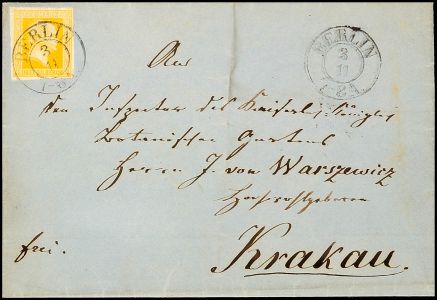 BERLIN
3
11
BERLIN
3
11
1-2A.
An
den Inspector des Kaiserlich Königlich
Botanischen Gartens
Herrn J. von Warszewicz
Hochwohlgeboren
frei.
Krakau.